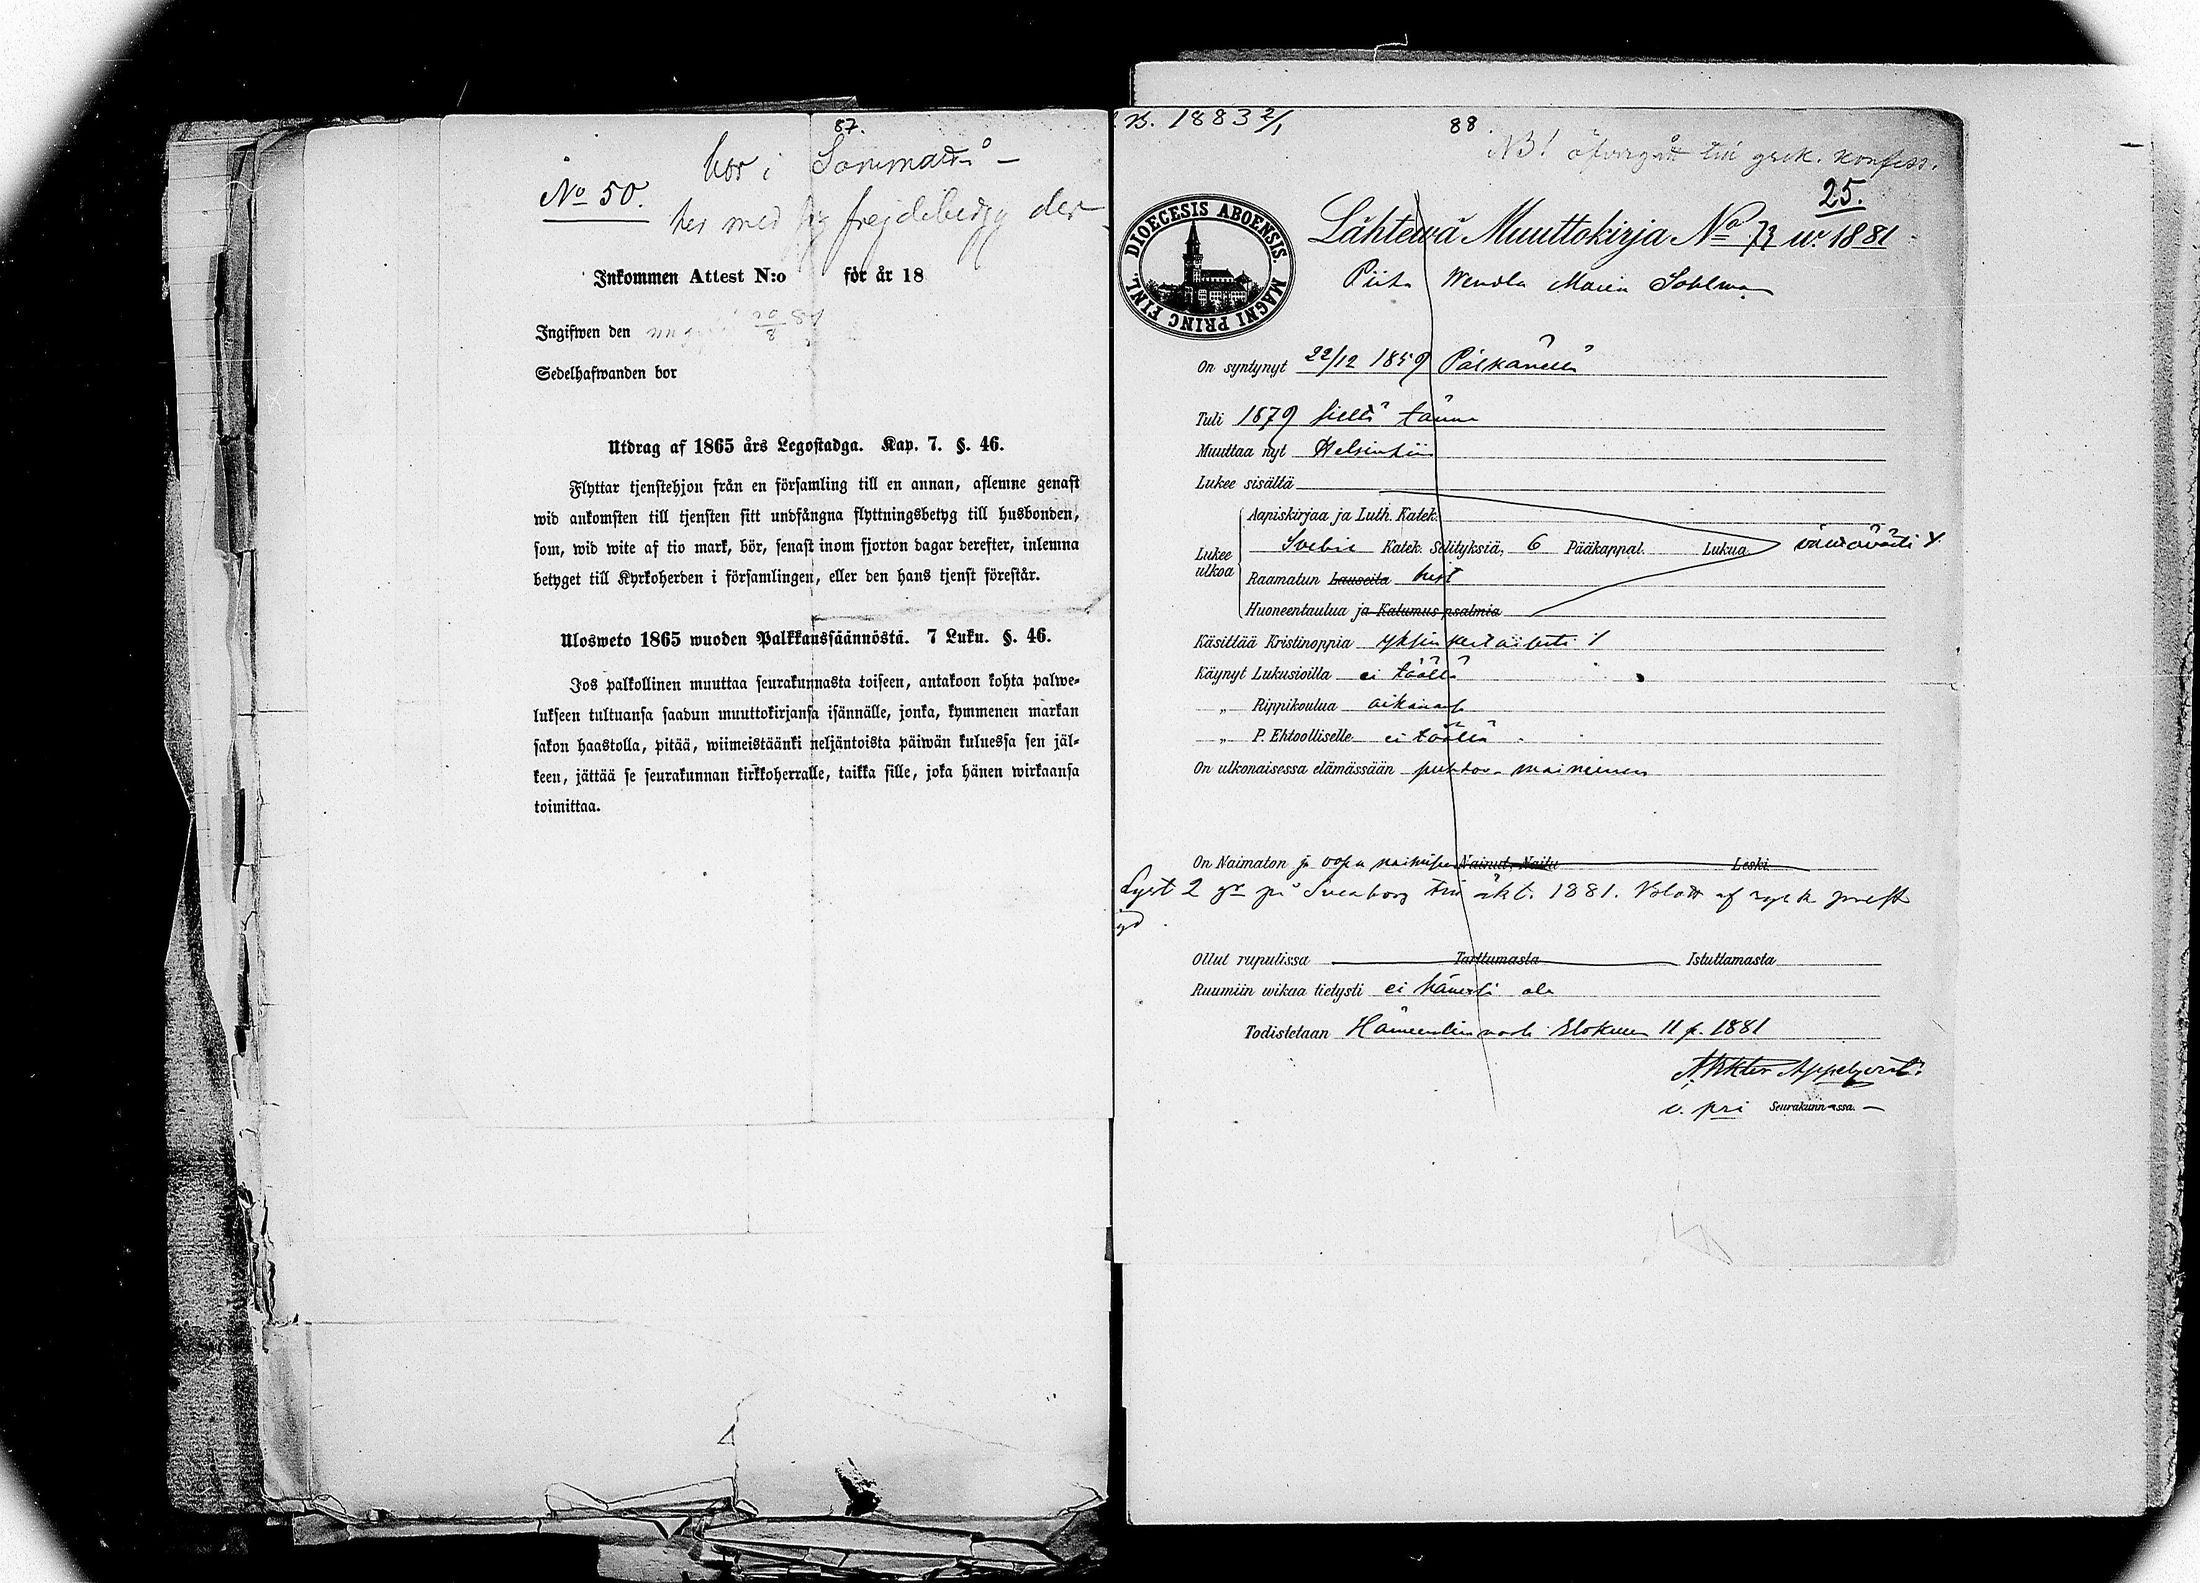 87.
bor i
No 50.
med sig frejdebetyg
Inkommen Attest N:o för år 18
Ingifwen den 20/8 81
Sedelhafwanden bor
Utdrag af 1865 års Legostadga. Kap. 7. §. 46.
Flyttar tjenstehjon från en församling till en annan, aflemne genast
wid ankomsten till tjensten sitt undfångna flyttningsbetyg till husbonden,
som, wid wite af tio mark, bör, senast inom fjorton dagar derefter, inlemna
betyget till Kyrkoherden i församlingen, eller den hans tjenst förestår.
Ulosweto 1865 wuoden Palkkaussäännöstä. 7 Luku. §. 46.
Jos palkollinen muuttaa seurakunnasta toiseen, antakoon kohta palwe-
lukseen tultuansa saadun muuttokirjansa isännälle, jonka, kymmenen markan
sakon haastolla, pitää, wiimeistäänki neljäntoista päiwän kuluessa sen jäl-
keen, jättää se seurakunnan kirkkoherralle, taikka sille, joka hänen wirkaansa
toimittaa.
B. 1883 2/1
88
NB! öfvergått till grek. konfess.
25.
DIOECESIS ABOENSIS. MAGNI PRINC FINL.
Lähtewä Muuttokirja No 73 w. 1881
Piika Wendla Maria
On syntynyt 22/12 1859 Pälkäneellä
Tuli 1879 sieltä tänne
Muuttaa nyt Helsinkiin
Lukee sisältä
Aapiskirjaa ja Luth. Katek.
Lukee ulkoa
Svebil. Katek. Selityksiä, 6 Pääkappal. Lukua
Raamatun Lauseita hist
Huoneentaulua ja Katumus psalmia
Käsittää Kristinoppia yksinkertaisesti
Käynyt Lukusioilla ei täällä
„ Rippikoulua aikanaan
„ P. Ehtoolliselle ei täällä
On ulkonaisessa elämässään puhdas maineinen
On Naimaton ja vapa naimisen Nainut, Naitu Leski.
Lyst 2 gr på Sveaborg till äkt. 1881. af rysk prest
Ollut rupulissa Tarttumasta Istuttamasta
Ruumiin wikaa tietysti ei hänessä ole
Todistetaan Hämeenlinnassa Elokuun 11 p. 1881
Appelqvist
v. pri Seurakunnassa.